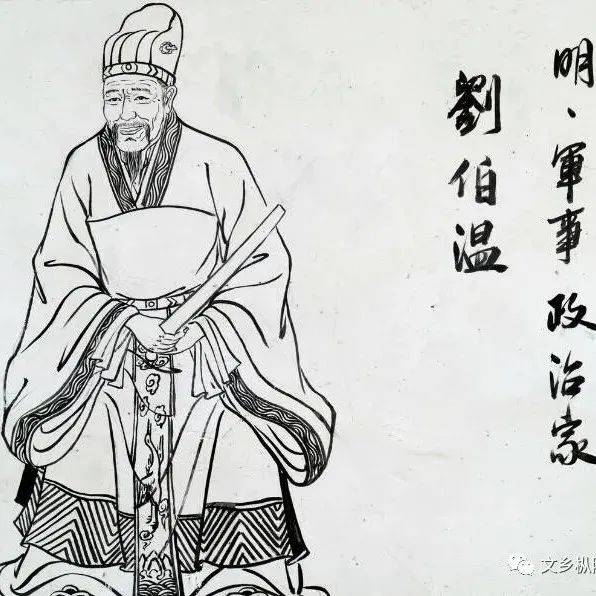 明、軍事政治家
劉伯温
文乡枞